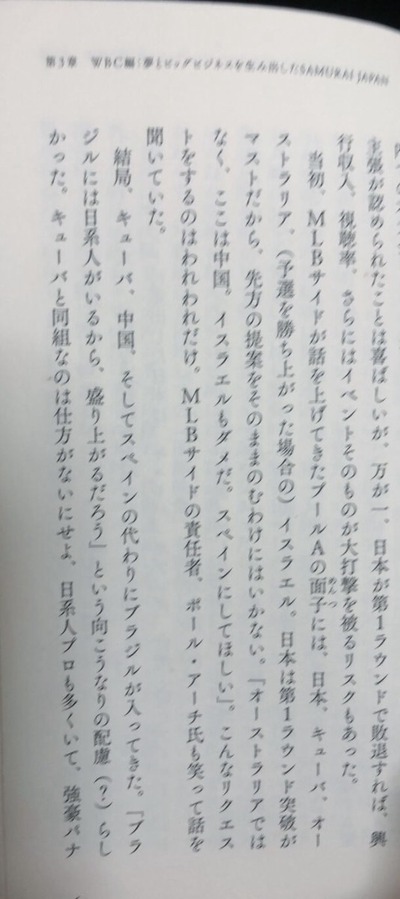 第3章　WBC編：夢とビッグビジネスを生み出したSAMURAI JAPAN
主張が認められたことは喜ばしいが、万が一、日本が第1ラウンドで敗退すれば、興
行収入、視聴率、さらにはイベントそのものが大打撃を被るリスクもあった。
当初、MLBサイドが話を上げてきたプールAの面子には、日本、キューバ、オー
めんつ
ストラリア、（予選を勝ち上がった場合の）イスラエル。日本は第1ラウンド突破が
マストだから、先方の提案をそのままのむわけにはいかない。「オーストラリアでは
なく、ここは中国。イスラエルもダメだ。スペインにしてほしい」。こんなリクエス
トをするのはわれわれだけ。MLBサイドの責任者、ポール・アーチ氏も笑って話を
聞いていた。
結局、キューバ、中国、そしてスペインの代わりにブラジルが入ってきた。「ブラ
ジルには日系人がいるから、盛り上がるだろう」という向こうなりの配慮（？）らし
かった。キューバと同組なのは仕方がないにせよ、日系人プロも多くいて、強豪パナ